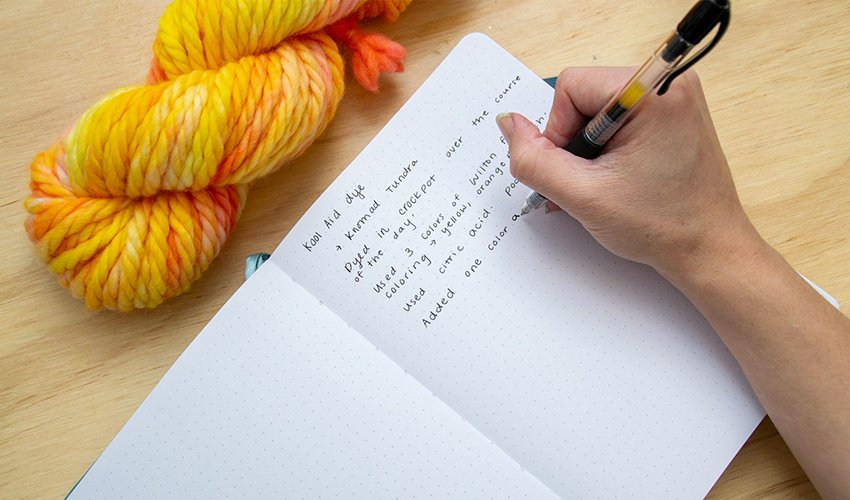 Kool Aid dye
→ Knomad Tundra
Dyed in crockpot over the course
of the day.
Used 3 colors of Wilton
coloring → yellow, orange
Used citric acid.
Added one color a